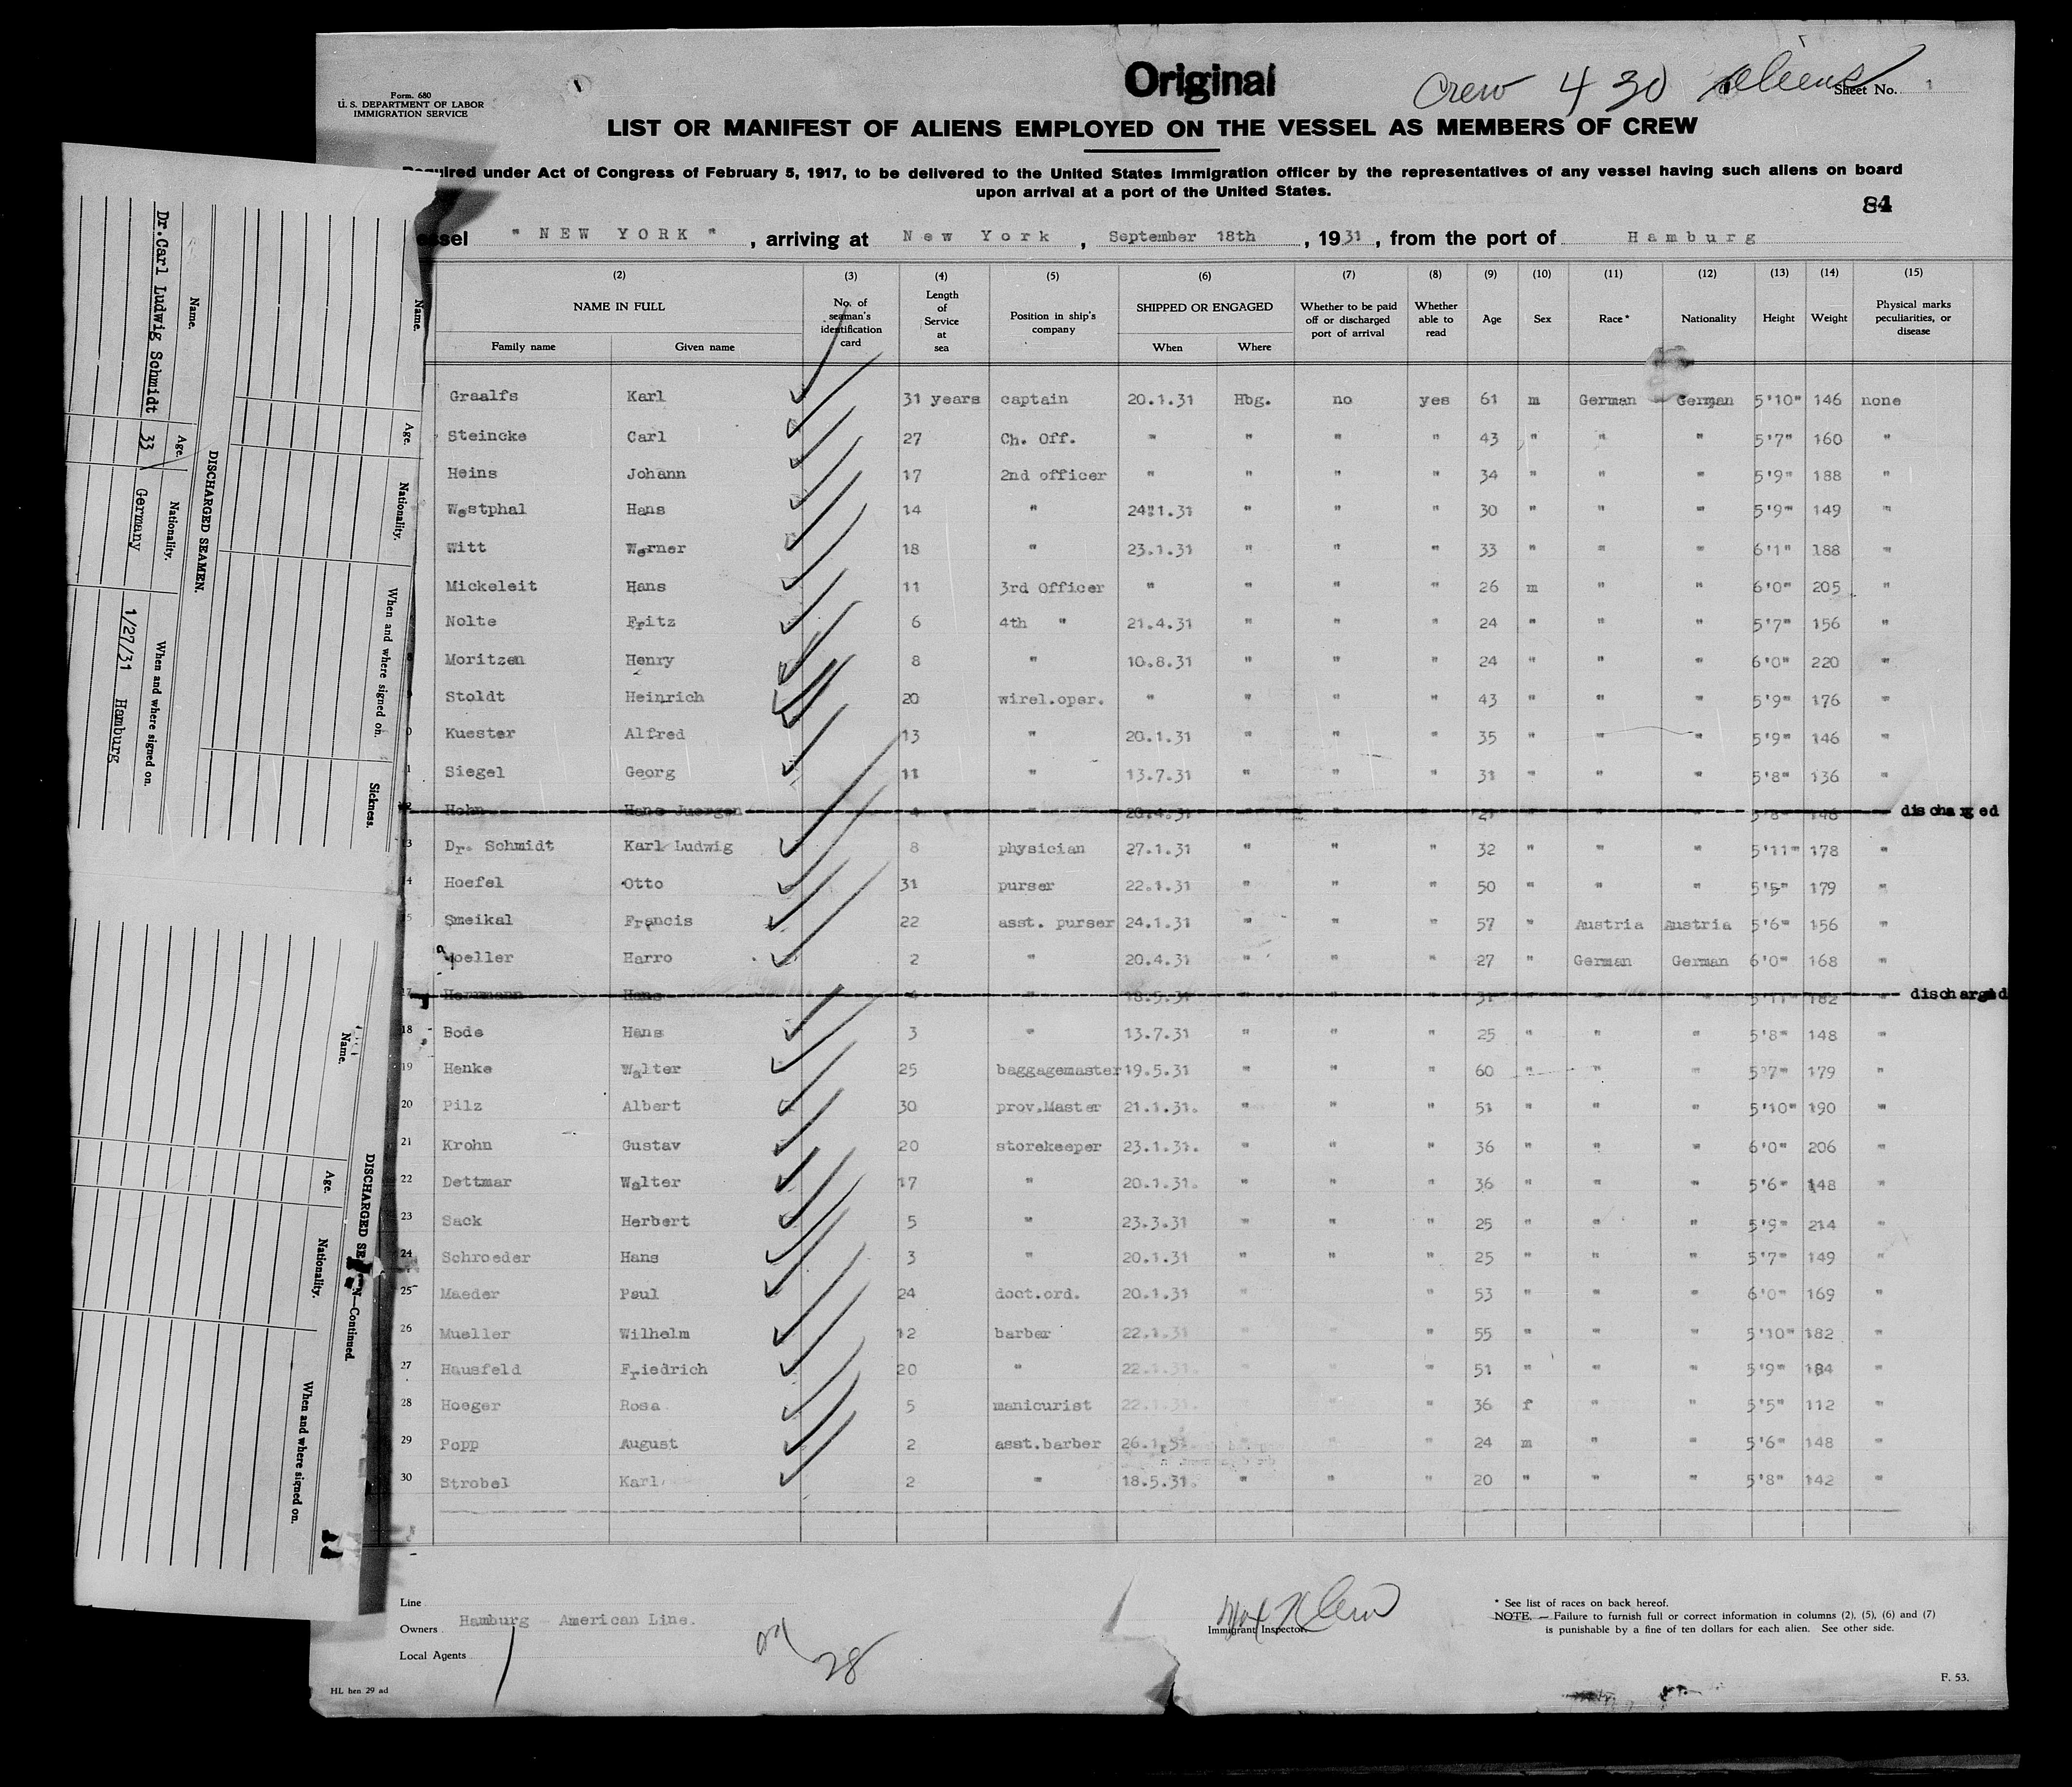 Original
Crew 430 aliens
Form. 680
U. S. DEPARTMENT OF LABOR
IMMIGRATION SERVICE
Sheet No. 1
LIST OR MANIFEST OF ALIENS EMPLOYED ON THE VESSEL AS MEMBERS OF CREW
Required under Act of Congress of February 5, 1917, to be delivered to the United States immigration officer by the representatives of any vessel having such aliens on board
upon arrival at a port of the United States.
84
essel " NEW YORK " , arriving at New York , September 18th , 1931 , from the port of Hamburg
(2) (3) (4) (5) (6) (7) (8) (9) (10) (11) (12) (13) (14) (15)
NAME IN FULL No. of seaman's identification card Length of Service at sea Position in ship's company SHIPPED OR ENGAGED Whether to be paid off or discharged port of arrival Whether able to read Age Sex Race* Nationality Height Weight Physical marks peculiarities, or disease
Family name Given name When Where
Graalfs Karl 31 years captain 20.1.31 Hbg. no yes 61 m German German 5'10" 146 none
Steincke Carl 27 Ch. Off. " " " " 43 " " " 5'7" 160 "
Heins Johann 17 2nd officer " " " " 34 " " " 5'9" 188 "
Westphal Hans 14 " 24.1.31 " " " 30 " " " 5'9" 149 "
Witt Werner 18 " 23.1.31 " " " 33 " " " 6'1" 188 "
Mickeleit Hans 11 3rd Officer " " " " 26 m " " 6'0" 205 "
Nolte Fritz 6 4th " 21.4.31 " " " 24 " " " 5'7" 156 "
Moritzen Henry 8 " 10.8.31 " " " 24 " " " 6'0" 220 "
Stoldt Heinrich 20 wirel.oper. " " " " 43 " " " 5'9" 176 "
Kuester Alfred 13 " 20.1.31 " " " 35 " " " 5'9" 146 "
Siegel Georg 11 " 13.7.31 " " " 31 " " " 5'8" 136 "
12 Hohn Hans Juergen 4 " 20.4.31 " " " 21 " " " 5'8" 148 discharged
Dr. Schmidt Karl Ludwig 8 physician 27.1.31 " " " 32 " " " 5'11" 178 "
Hoefel Otto 31 purser 22.1.31 " " " 50 " " " 5'5" 179 "
Smeikal Francis 22 asst. purser 24.1.31 " " " 57 " Austria Austria 5'6" 156 "
Moeller Harro 2 " 20.4.31 " " " 27 " German German 6'0" 168 "
17 Herrmann Hans 4 " 18.5.31 " " " 31 " " " 5'11" 182 " discharged
18 Bode Hans 3 " 13.7.31 " " " 25 " " " 5'8" 148 "
19 Henke Walter 25 baggagemaster 19.5.31 " " " 60 " " " 5'7" 179 "
20 Pilz Albert 30 prov.Master 21.1.31. " " " 51 " " " 5'10" 190 "
21 Krohn Gustav 20 storekeeper 23.1.31. " " " 36 " " " 6'0" 206 "
22 Dettmar Walter 17 " 20.1.31. " " " 36 " " " 5'6" 148 "
23 Sack Herbert 5 " 23.3.31 " " " 25 " " " 5'9" 214 "
24 Schroeder Hans 3 " 20.1.31 " " " 25 " " " 5'7" 149 "
25 Maeder Paul 24 doct.ord. 20.1.31 " " 53 " " " 6'0" 169 "
26 Mueller Wilhelm 12 barber 22.1.31 " " " 55 " " " 5'10" 182 "
27 Hausfeld Friedrich 20 " 22.1.31. " " 51 " " " 5'9" 184 "
28 Hoeger Rosa 5 manicurist 22.1.31. " " " 36 f " " 5'5" 112 "
29 Popp August 2 asst.barber 26.1.31. " " " 24 m " " 5'6" 148 "
30 Strobel Karl 2 " 18.5.31. " " " 20 " " " 5'8" 142 "
Line
Owners Hamburg - American Line.
Local Agents
28
Immigrant Inspector.
* See list of races on back hereof.
NOTE. — Failure to furnish full or correct information in columns (2), (5), (6) and (7)
is punishable by a fine of ten dollars for each alien. See other side.
HL hen 29 ad
F. 53.
Name. Age. Nationality. When and where signed on. Sickness.
DISCHARGED SEAMEN.
Name. Age. Nationality. When and where signed on.
Dr.Carl Ludwig Schmidt 33 Germany 1/27/31 Hamburg
DISCHARGED SEAMEN—Continued.
Name. Age. Nationality. When and where signed on.